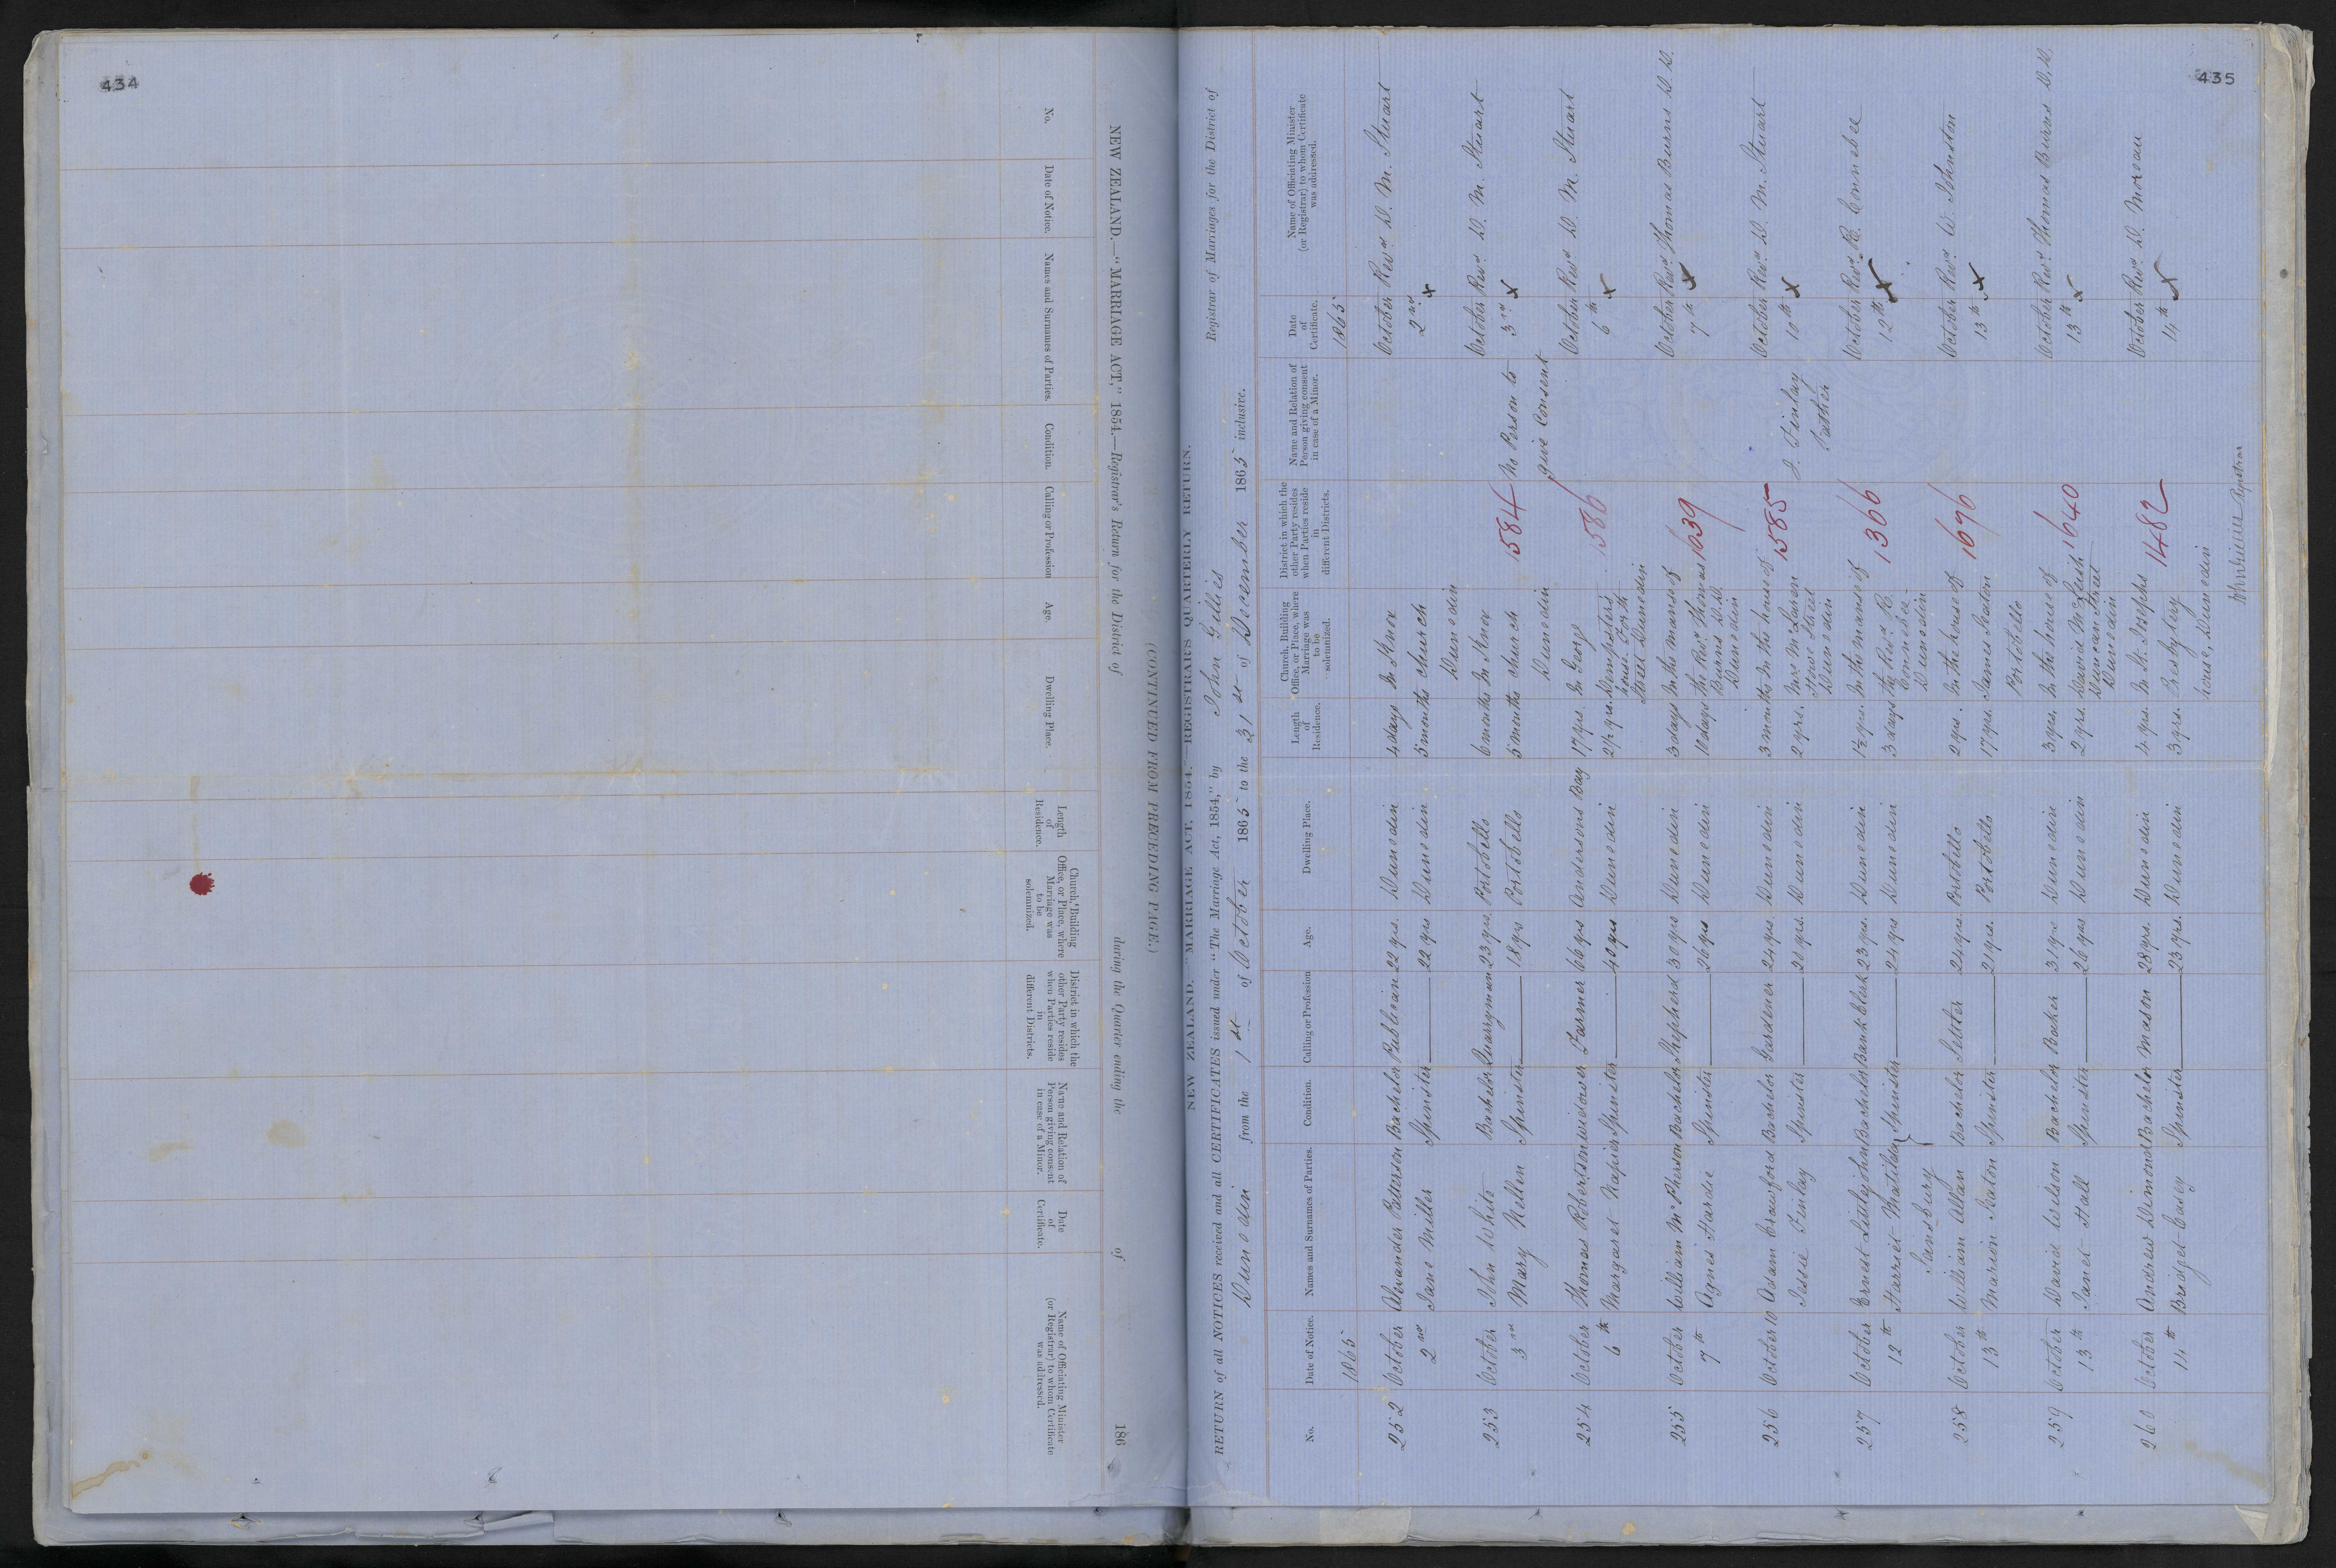 434
NEW ZEALAND.—"MARRIAGE ACT," 1854.—Registrar's Return for the District of during the Quarter ending the of 186
(CONTINUED FROM PRECEDING PAGE.)
No.
Date of Notice.
Names and Surnames of Parties.
Condition.
Calling or Profession
Age.
Dwelling Place.
Length
of
Residence.
Church, Building
Office, or Place, where
Marriage was
to be
solemnized.
District in which the
other Party resides
when Parties reside
in
different Districts.
Name and Relation of
Person giving consent
in case of a Minor.
Date
of
Certificate.
Name of Officiating Minister
(or Registrar) to whom Certificate
was addressed.
435
NEW ZEALAND. "MARRIAGE ACT, 1854." REGISTRAR'S QUARTERLY RETURN.
RETURN of all NOTICES received and all CERTIFICATES issued under "The Marriage Act, 1854," by John Gillies Registrar of Marriages for the District of
Dunedin from the 1st of October 1865 to the 31st of December 1865 inclusive.
No.
Date of Notice.
Names and Surnames of Parties.
Condition.
Calling or Profession
Age.
Dwelling Place.
Length
of
Residence.
Church, Building
Office, or Place, where
Marriage was
to be
solemnized.
District in which the
other Party resides
when Parties reside
in
different Districts.
Name and Relation of
Person giving consent
in case of a Minor.
Date
of
Certificate.
Name of Officiating Minister
(or Registrar) to whom Certificate
was addressed.
1865 1865
252 October Alexander Patterson Bachelor Publican 22 yrs. Dunedin 4 days In Knox October Revd. D. M. Stuart
2nd Jane Miller Spinster 22 yrs Dunedin 5 months church 2nd x
Dunedin
253 October John White Bachelor Quarryman 23 yrs. Portobello 6 months In Knox 1584 No Person to October Revd. D. M. Stuart
3rd Mary Nellen Spinster 18 yrs Portobello 5 months church give Consent 3rd x
Dunedin
254 October Thomas Robertson widower Farmer 66 yrs Andersons Bay 17 yrs. In George 1586 October Revd D. M. Stuart
6th Margaret Napier Spinster 40 yrs Dunedin 2½ yrs. Dempster's 6th x
house Forth
Street Dunedin
255 October William McPherson Bachelor Shepherd 30 yrs Dunedin 3 days In the manse of 1639 October Revd. Thomas Burns D.D.
7th Agnes Hardie Spinster 26 yrs Dunedin 10 days the Revd. Thomas 7th x
Burns D.D.
Dunedin
256 October 10 Adam Crawford Bachelor Gardener 24 yrs. Dunedin 3 months In the house of 1585 J. Finlay October Revd. D. M. Stuart
Jessie Finlay Spinster 20 yrs. Dunedin 2 yrs. Mrs McLaren Father 10th x
Howe Street
Dunedin
257 October Ernest Littlejohn Bachelor Bank Clerk 23 yrs. Dunedin 1½ yrs. In the manse of 1366 October Revd. R. Connebee
12th Harriet Matilda Spinster 24 yrs Dunedin 3 days the Revd. R. 12th x
Sansbury Connebee
Dunedin
258 October William Allan Bachelor Settler 24 yrs. Portobello 2 yrs. In the house of 1696 October Revd. W. Johnston
13th Marion Seaton Spinster 21 yrs. Portobello 17 yrs. James Seaton 13th x
Portobello
259 October David Wilson Bachelor Baker 31 yrs Dunedin 3 yrs. In the house of 1640 October Revd. Thomas Burns D.D.
13th Janet Hall Spinster 26 yrs Dunedin 2 yrs. David McLeish 13th x
Duncan Street
Dunedin
260 October Andrew Dimond Bachelor Mason 28 yrs. Dunedin 4 yrs. In St. Josephs 1482 October Revd. D. Moreau
14th Bridget Casey Spinster 23 yrs. Dunedin 3 yrs. Presbytery 14th x
house, Dunedin
John Gillies Registrar